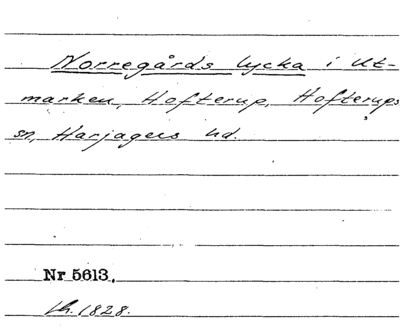 Norregårds lycka i Ut-
marken, Hofterup, Hofterups
sn, Harjagers hd.
Nr 5613,
1828.